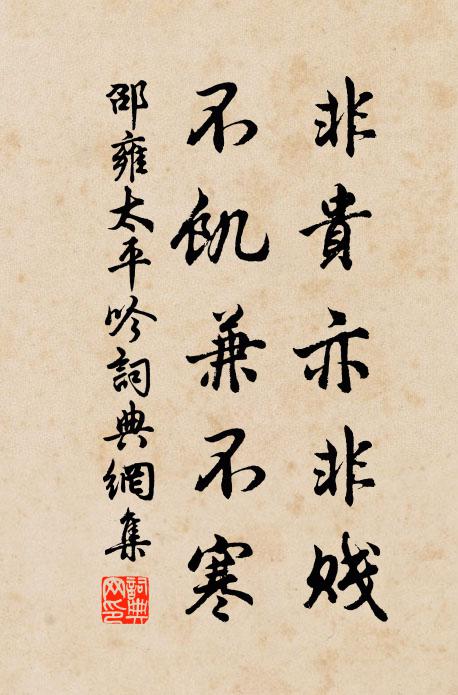 非貴亦非賤
不飢兼不寒
邵雍太平吟詞典網集
詞典網印